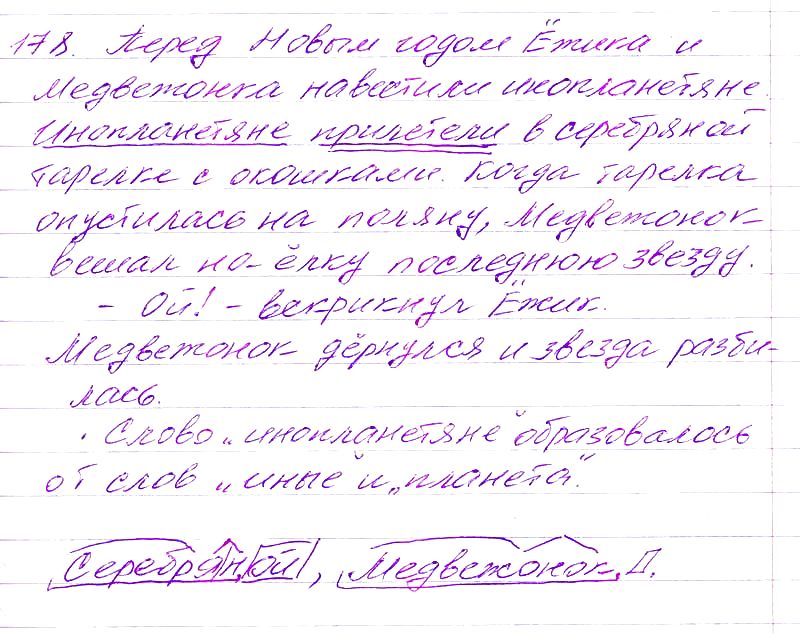 178. Перед Новым годом Ёжика и
Медвежонка навестили инопланетяне.
Инопланетяне прилетели в серебряной
тарелке с окошками. Когда тарелка
опустилась на поляну, Медвежонок
вешал на ёлку последнюю звезду.
- Ой! - вскрикнул Ёжик.
Медвежонок дёрнулся и звезда разби-
лась.
. Слово „инопланетяне" образовалось
от слов „иные" и „планета".
Серебряной, Медвежонок